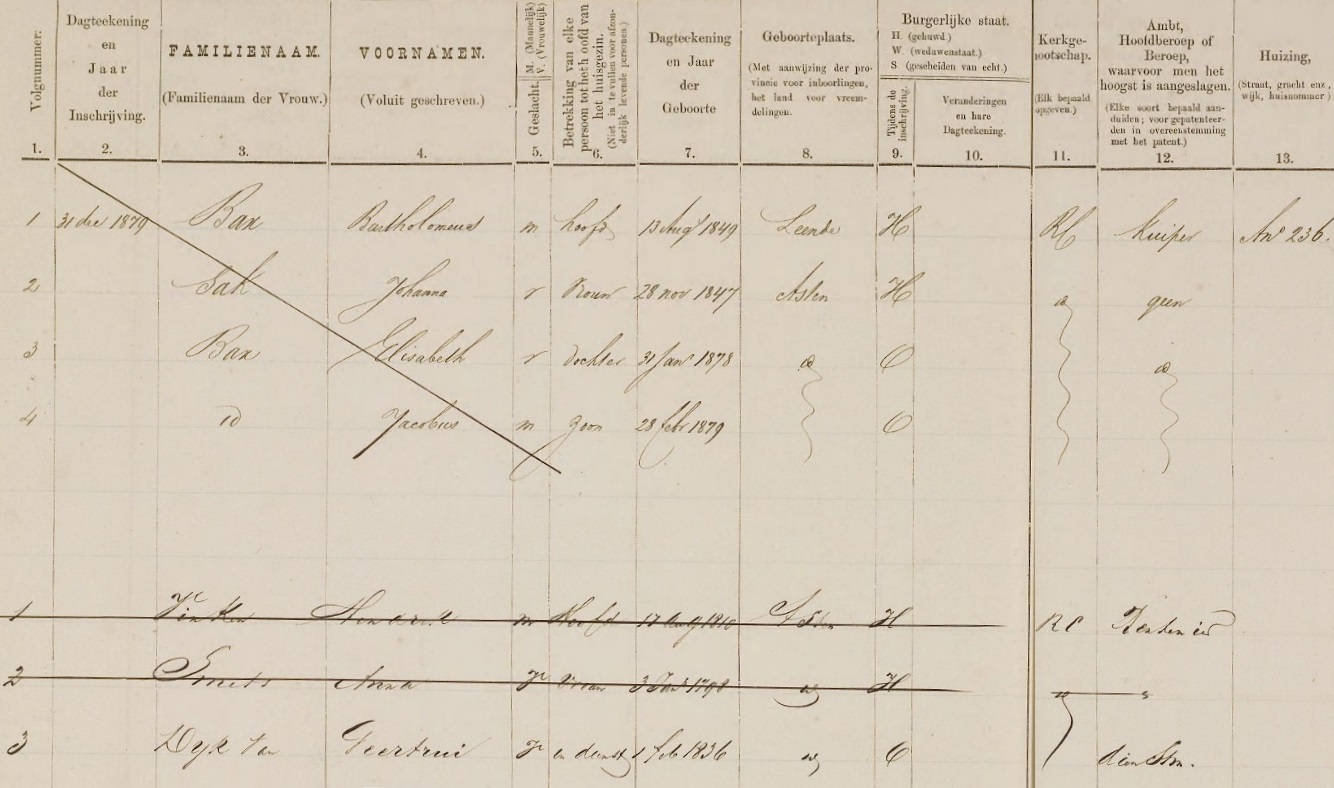 Volgnummer.
Dagteekening
en
Jaar
der
Inschrijving.
FAMILIENAAM.
(Familienaam der Vrouw.)
VOORNAMEN.
(Voluit geschreven.)
Geslacht. M. (Mannelijk) V. (Vrouwelijk)
Betrekking van elke
persoon tot heth oofd van
het huisgezin.
(Niet in te vullen voor afzon-
derlijk levende personen.)
Dagteekening
en Jaar
der
Geboorte
Geboorteplaats.
(Met aanwijzing der pro-
vincie voor inboorlingen,
het land voor vreem-
delingen.
Burgerlijke staat.
H (gehuwd.)
W. (weduwenstaat.)
S (gescheiden van echt.)
Tijdens de
inschrijving.
Veranderingen
en hare
Dagteekening.
Kerkge-
nootschap.
(Elk bepaald
opgeven.)
Ambt,
Hoofdberoep of
Beroep,
waarvoor men het
hoogst is aangeslagen.
(Elke soort bepaald aan-
duiden; voor gepatenteer-
den in overeenstemming
met het patent.)
Huizing,
(Straat, gracht enz.,
wijk, huisnommer)
1. 2. 3. 4. 5. 6. 7. 8. 9. 10. 11. 12. 13.
1 31 dec 1879 Bax Bartholomeus m hoofd 13 Aug 1849 Leende H RC kuiper An 236.
2 Sak Johanna v Vrouw 28 nov 1847 Asten H geen
3 Bax Elisabeth v dochter 31 Jan 1878 O
4 id Jacobus m zoon 28 febr 1879 O
1 Vinken Hendrik m Hoofd 17 Aug 1810 Asten H RC Rentenier
2 Smets Anna V Vrouw 3 H
3 Dyk Van Geertrui V in dienst 1 feb 1836 O dienstm.